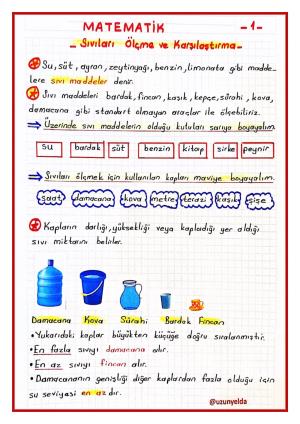 MATEMATİK
- 1 -
- Sıvıları Ölçme ve Karşılaştırma -
Su, süt, ayran, zeytinyağı, benzin, limonata gibi madde-
lere sıvı maddeler denir.
Sıvı maddeleri bardak, fincan, kaşık, kepçe, sürahi, kova,
damacana gibi standart olmayan araçlar ile ölçebiliriz.
⇒ Üzerinde sıvı maddelerin olduğu kutuları sarıya boyayalım.
su bardak süt benzin kitap sirke peynir
⇒ Sıvıları ölçmek için kullanılan kapları maviye boyayalım.
saat damacana kova metre terazi kaşık şişe
Kapların darlığı, yüksekliği veya kapladığı yer aldığı
sıvı miktarını belirler.
Damacana Kova Sürahi Bardak Fincan
• Yukarıdaki kaplar büyükten küçüğe doğru sıralanmıştır.
• En fazla sıvıyı damacana alır.
• En az sıvıyı fincan alır.
• Damacananın genişliği diğer kaplardan fazla olduğu için
su seviyesi en azdır.
@uzunyelda